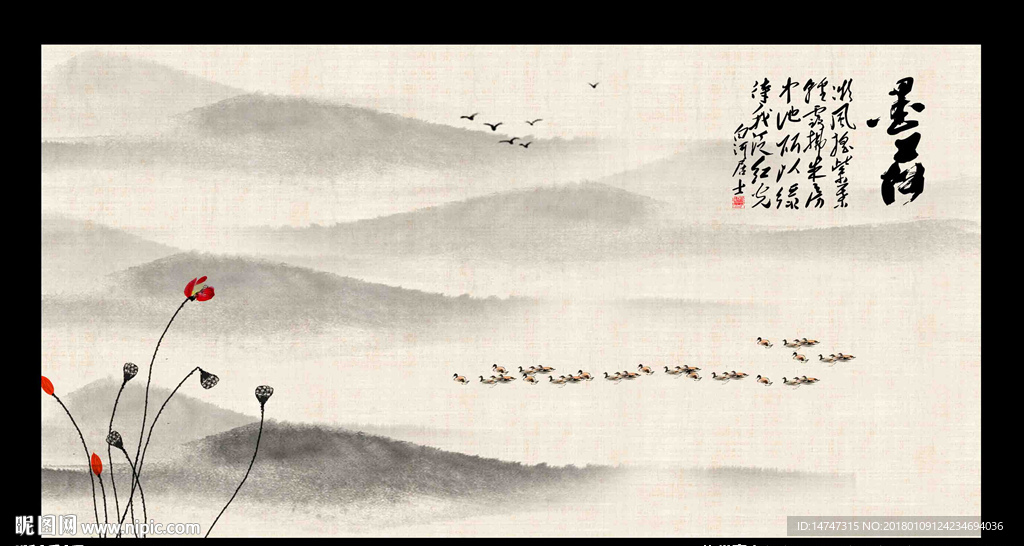 墨荷
微風搖紫葉
輕露拂朱房
中池所以綠
待我泛紅光
白河居士
昵图网 www.nipic.com
ID:14747315 NO:20180109124234694036